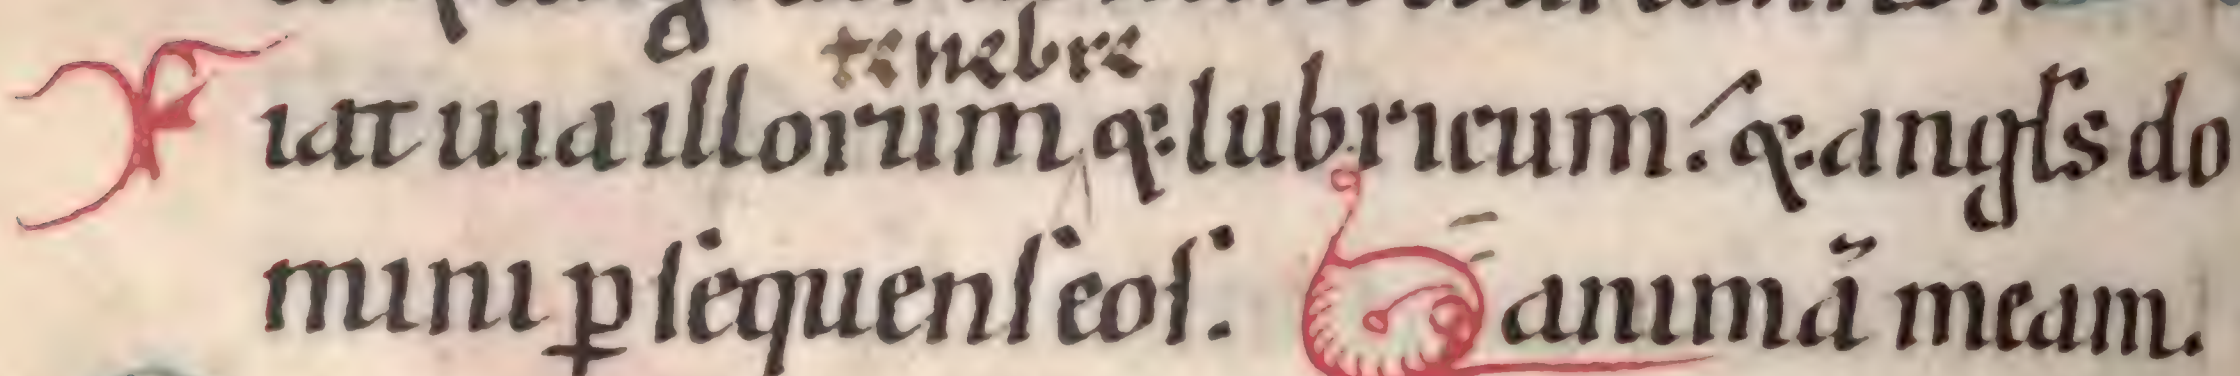 tenebre
Fiat uia illorum q; lubricum: q; angls do
mini ꝑsequens eos. animā meam.